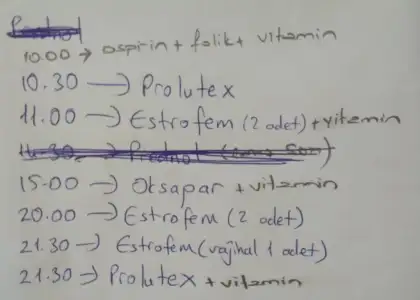 Prednol
10.00 → aspirin + folik + vitamin
10.30 → Prolutex
11.00 → Estrofem (2 adet) + vitamin
14.30 → Prednol
15.00 → Oksapar + vitamin
20.00 → Estrofem (2 adet)
21.30 → Estrofem (vajinal 1 adet)
21.30 → Prolutex + vitamin